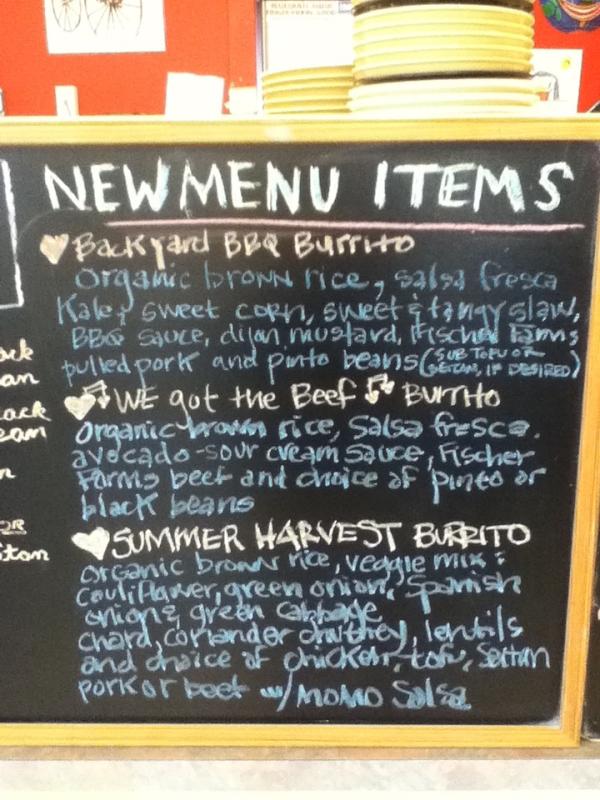 NEW MENU ITEMS
Backyard BBQ Burrito
Organic brown rice, salsa fresca
Kale, sweet corn, sweet & tangy slaw,
BBQ sauce, dijon mustard, Fischer Farms
pulled pork and pinto beans (SUB TOFU OR
SETAN, IF DESIRED)
WE got the Beef BURRITO
Organic brown rice, Salsa fresca.
avocado-sour cream sauce, Fischer
Farms beef and choice of pinto or
black beans
SUMMER HARVEST BURRITO
organic brown rice, veggie mix:
cauliflower, green onion, Spanish
onion, green cabbage,
chard, coriander chutney, lentils
and choice of chicken, tofu, Seitan
pork or beef w/ MOMO Salsa
ack
an
lack
eam
n
OR
itan